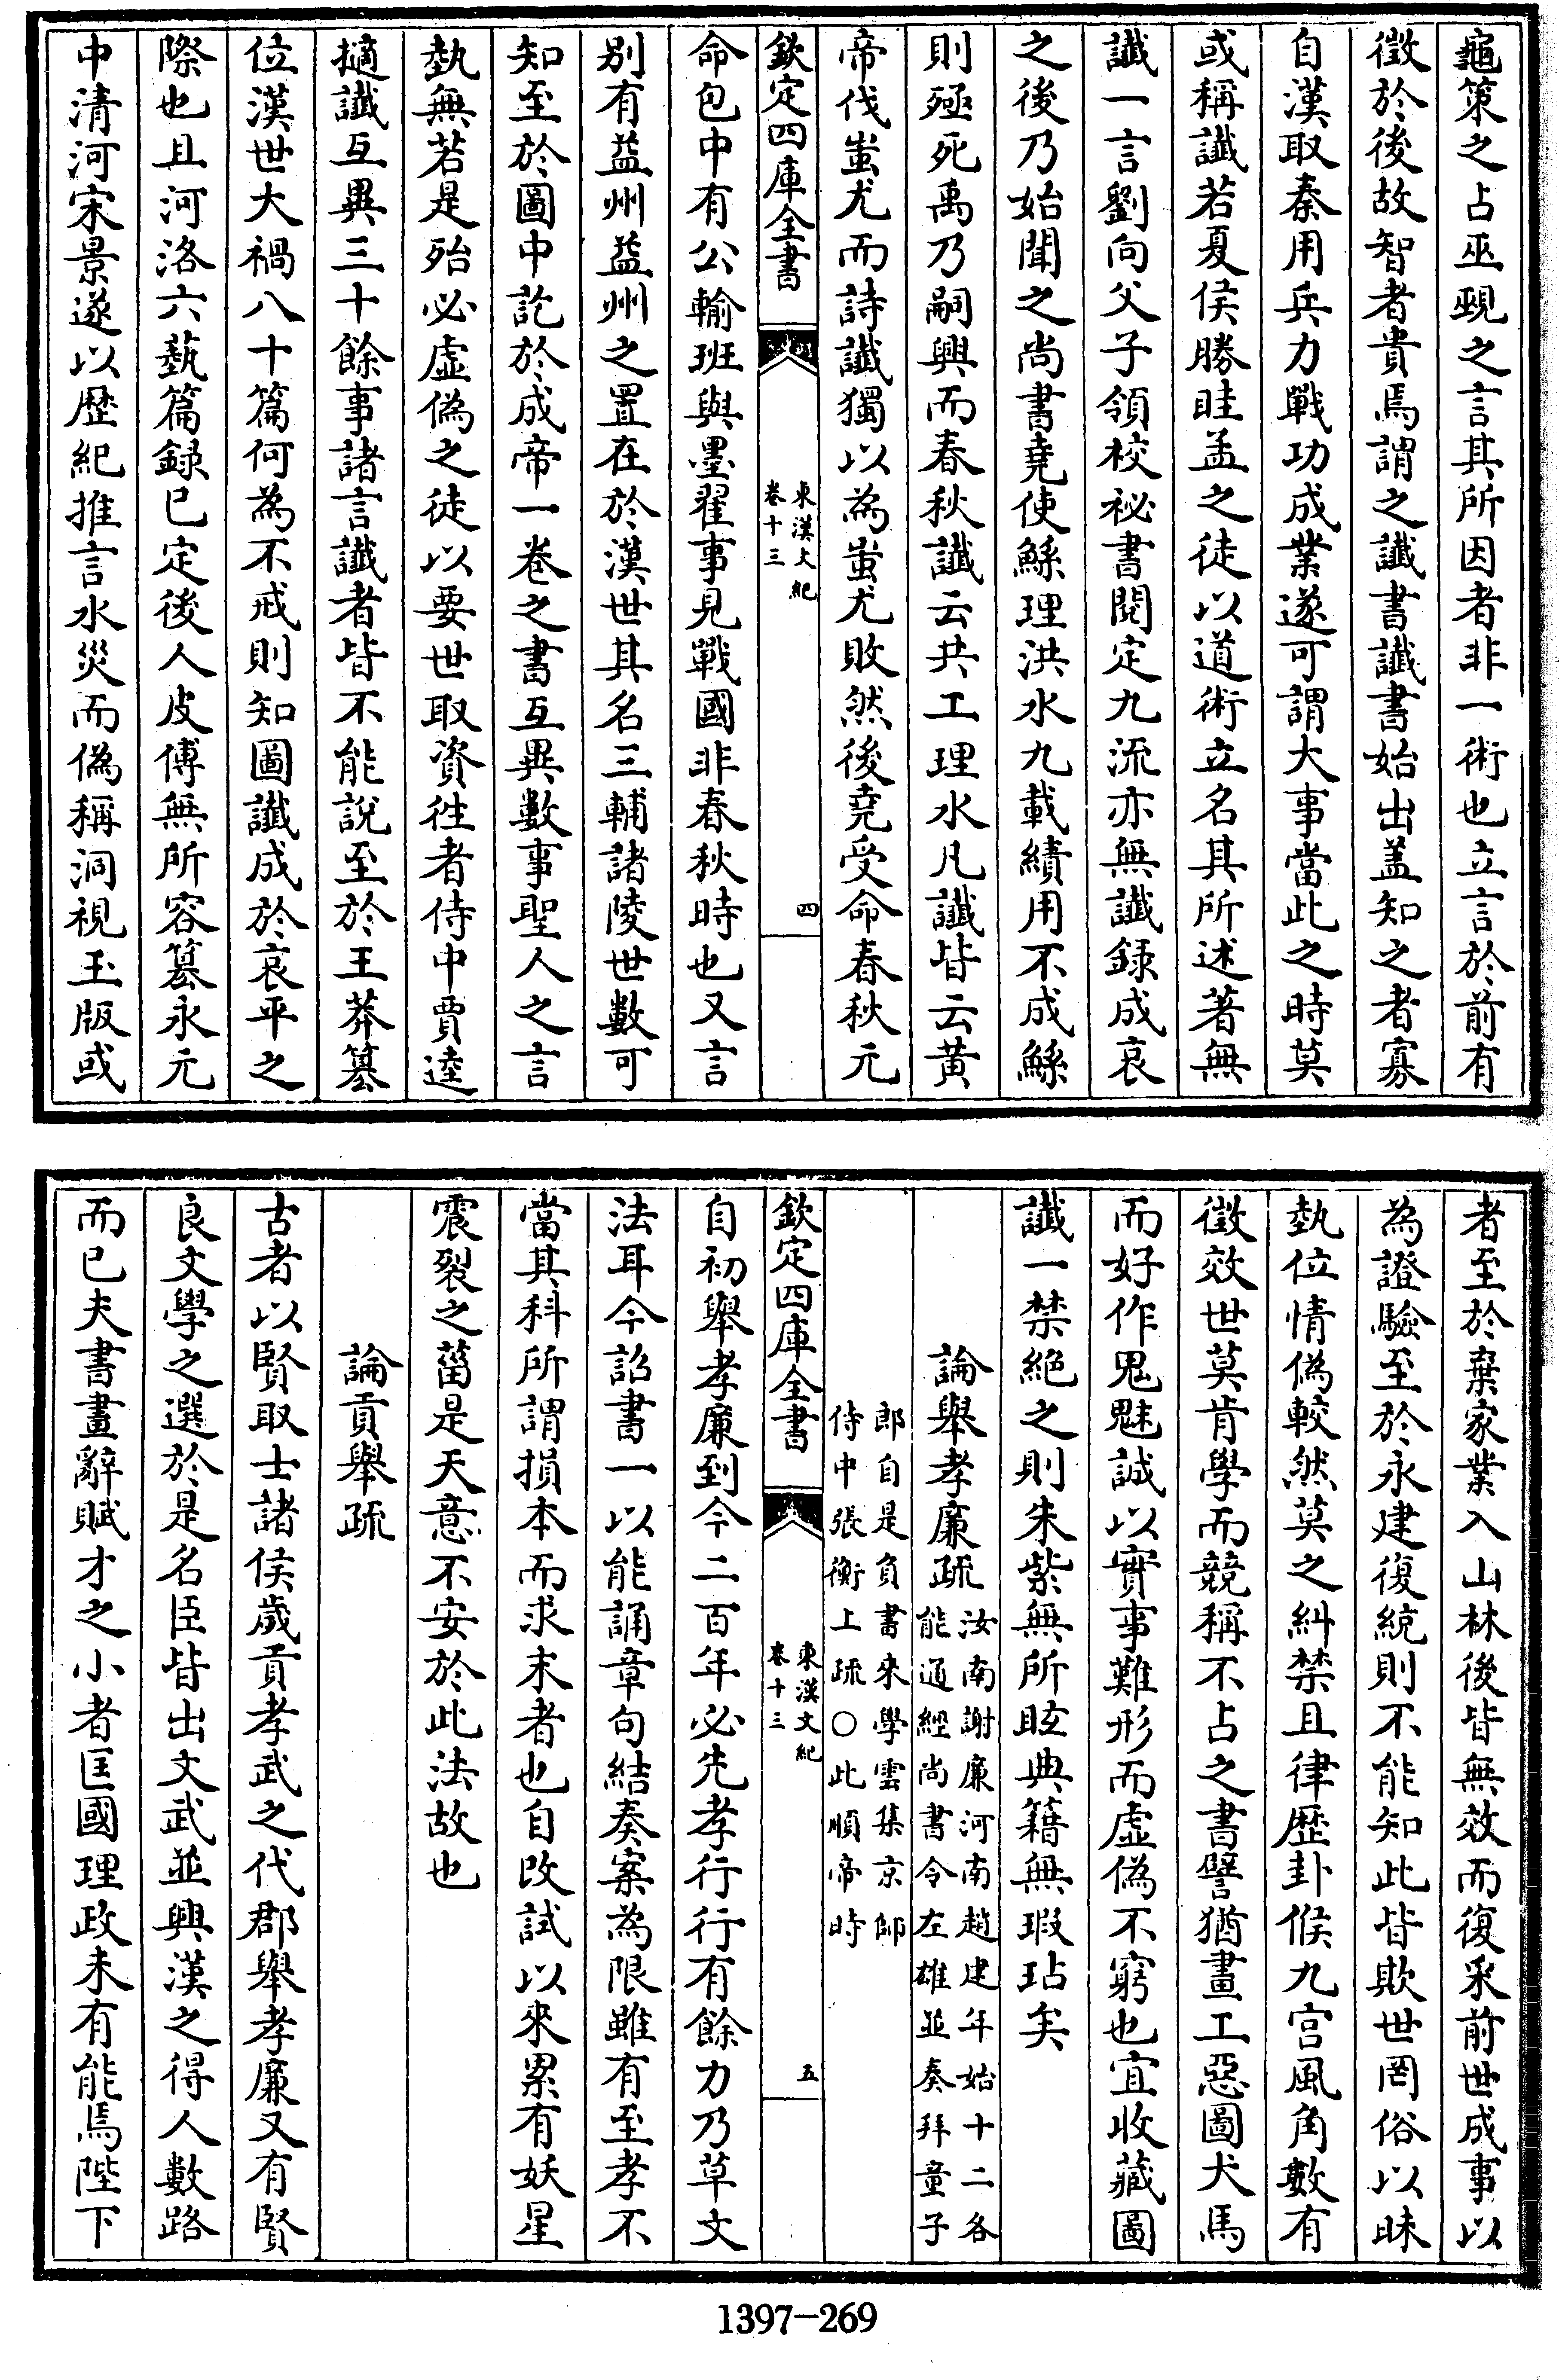 龜策之占巫覡之言其所因者非一術也立言於前有
徵於後故智者貴焉謂之讖書讖書始出盖知之者寡
自漢取秦用兵力戰功成業遂可謂大事當此之時莫
或稱讖若夏侯勝眭孟之徒以道術立名其所述著無
讖一言劉向父子領校祕書閱定九流亦無讖録成哀
之後乃始聞之尚書堯使鯀理洪水九載績用不成鯀
則殛死禹乃嗣興而春秋讖云共工理水凡讖皆云黃
帝伐蚩尤而詩讖獨以為蚩尤敗然後堯受命春秋元
欽定四庫全書
東漢文紀
卷十三
四
命包中有公輸班與墨翟事見戰國非春秋時也又言
别有益州益州之置在於漢世其名三輔諸陵世數可
知至於圖中訖於成帝一卷之書互異數事聖人之言
埶無若是殆必虛偽之徒以要世取資徃者侍中賈逵
擿讖互異三十餘事諸言讖者皆不能說至於王莽篡
位漢世大禍八十篇何為不戒則知圖讖成於哀平之
際也且河洛六藝篇録已定後人皮傅無所容篡永元
中清河宋景遂以歴紀推言水災而偽稱洞視玉版或
者至於棄家業入山林後皆無效而復采前世成事以
為證驗至於永建復統則不能知此皆欺世罔俗以昧
埶位情偽較然莫之糾禁且律歴卦候九宫風角數有
徵效世莫肯學而競稱不占之書譬猶畫工惡圖犬馬
而好作鬼魅誠以實事難形而虛偽不窮也宜收藏圖
讖一禁絕之則朱紫無所眩典籍無瑕玷矣
論舉孝廉疏汝南謝廉河南趙建年始十二各
能通經尚書令左雄並奏拜童子
郎自是負書來學雲集京師
侍中張衡上疏○此順帝時
欽定四庫全書
東漢文紀
卷十三
五
自初舉孝廉到今二百年必先孝行行有餘力乃草文
法耳今詔書一以能誦章句結奏案為限雖有至孝不
當其科所謂損本而求末者也自改試以來累有妖星
震裂之菑是天意不安於此法故也
論貢舉疏
古者以賢取士諸侯歲貢孝武之代郡舉孝廉又有賢
良文學之選於是名臣皆出文武並興漢之得人數路
而已夫書畫辭賦才之小者匡國理政未有能焉陛下
1397-269